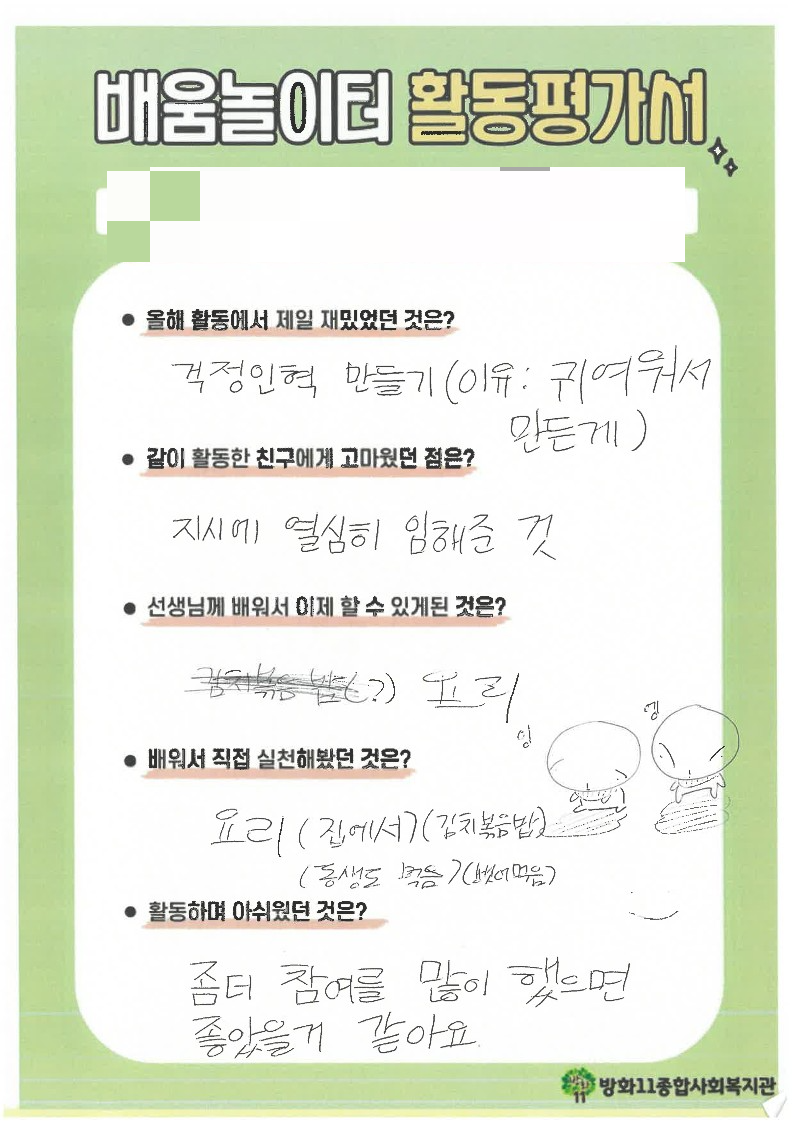 배움놀이터 활동평가서
● 올해 활동에서 제일 재밌었던 것은?
걱정인혁 만들기(이유: 귀여워서
만든게)
● 같이 활동한 친구에게 고마웠던 점은?
지시에 열심히 임해준 것
● 선생님께 배워서 이제 할 수 있게된 것은?
김치볶음밥(?) 요리
잉
엥
● 배워서 직접 실천해봤던 것은?
요리 (집에서)(김치볶음밥)
(동생도 먹음)(뺏어먹음)
● 활동하며 아쉬웠던 것은?
좀더 참여를 많이 했으면
좋았을거 같아요.
방화11종합사회복지관